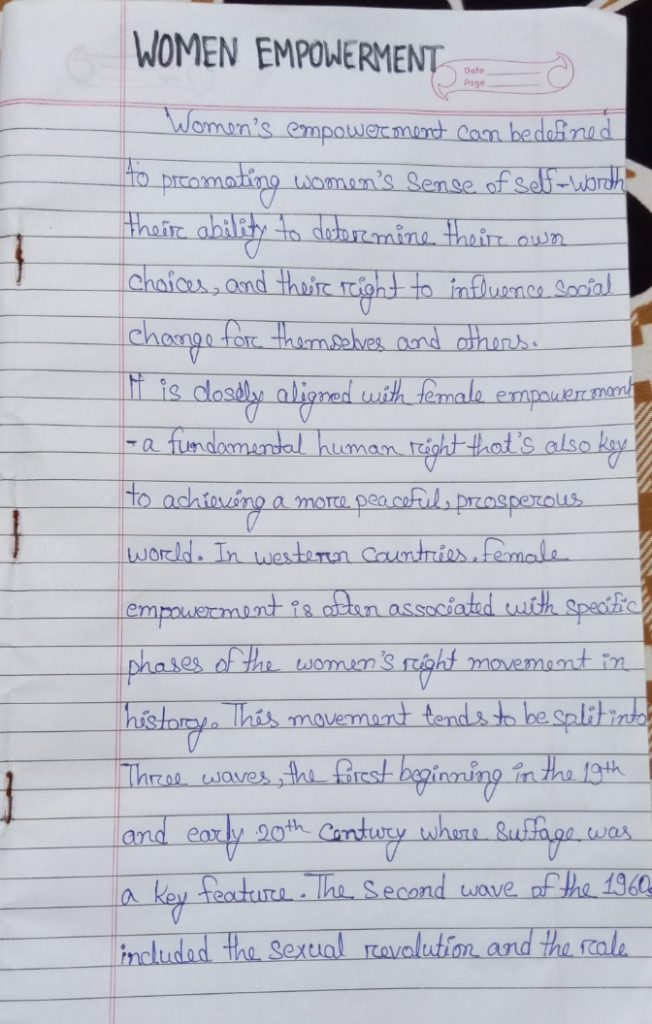 WOMEN EMPOWERMENT
Date
Page
Women's empowerment can be defined
to promoting women's sense of self-worth
their ability to determine their own
choices, and their right to influence social
change for themselves and others.
It is closely aligned with female empowerment
- a fundamental human right that's also key
to achieving a more peaceful, prosperous
world. In western countries, female
empowerment is often associated with specific
phases of the women's right movement in
history. This movement tends to be split into
Three waves, the first beginning in the 19th
and early 20th century where suffage was
a key feature. The second wave of the 1960s
included the sexual revolution and the role